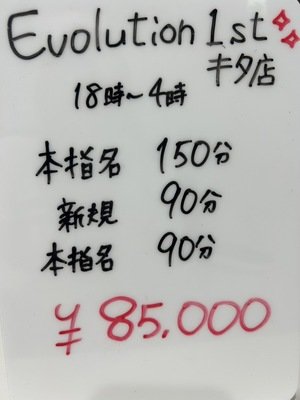 Evolution 1st
キタ店
18時~4時
本指名 150分
新規 90分
本指名 90分
¥85.000